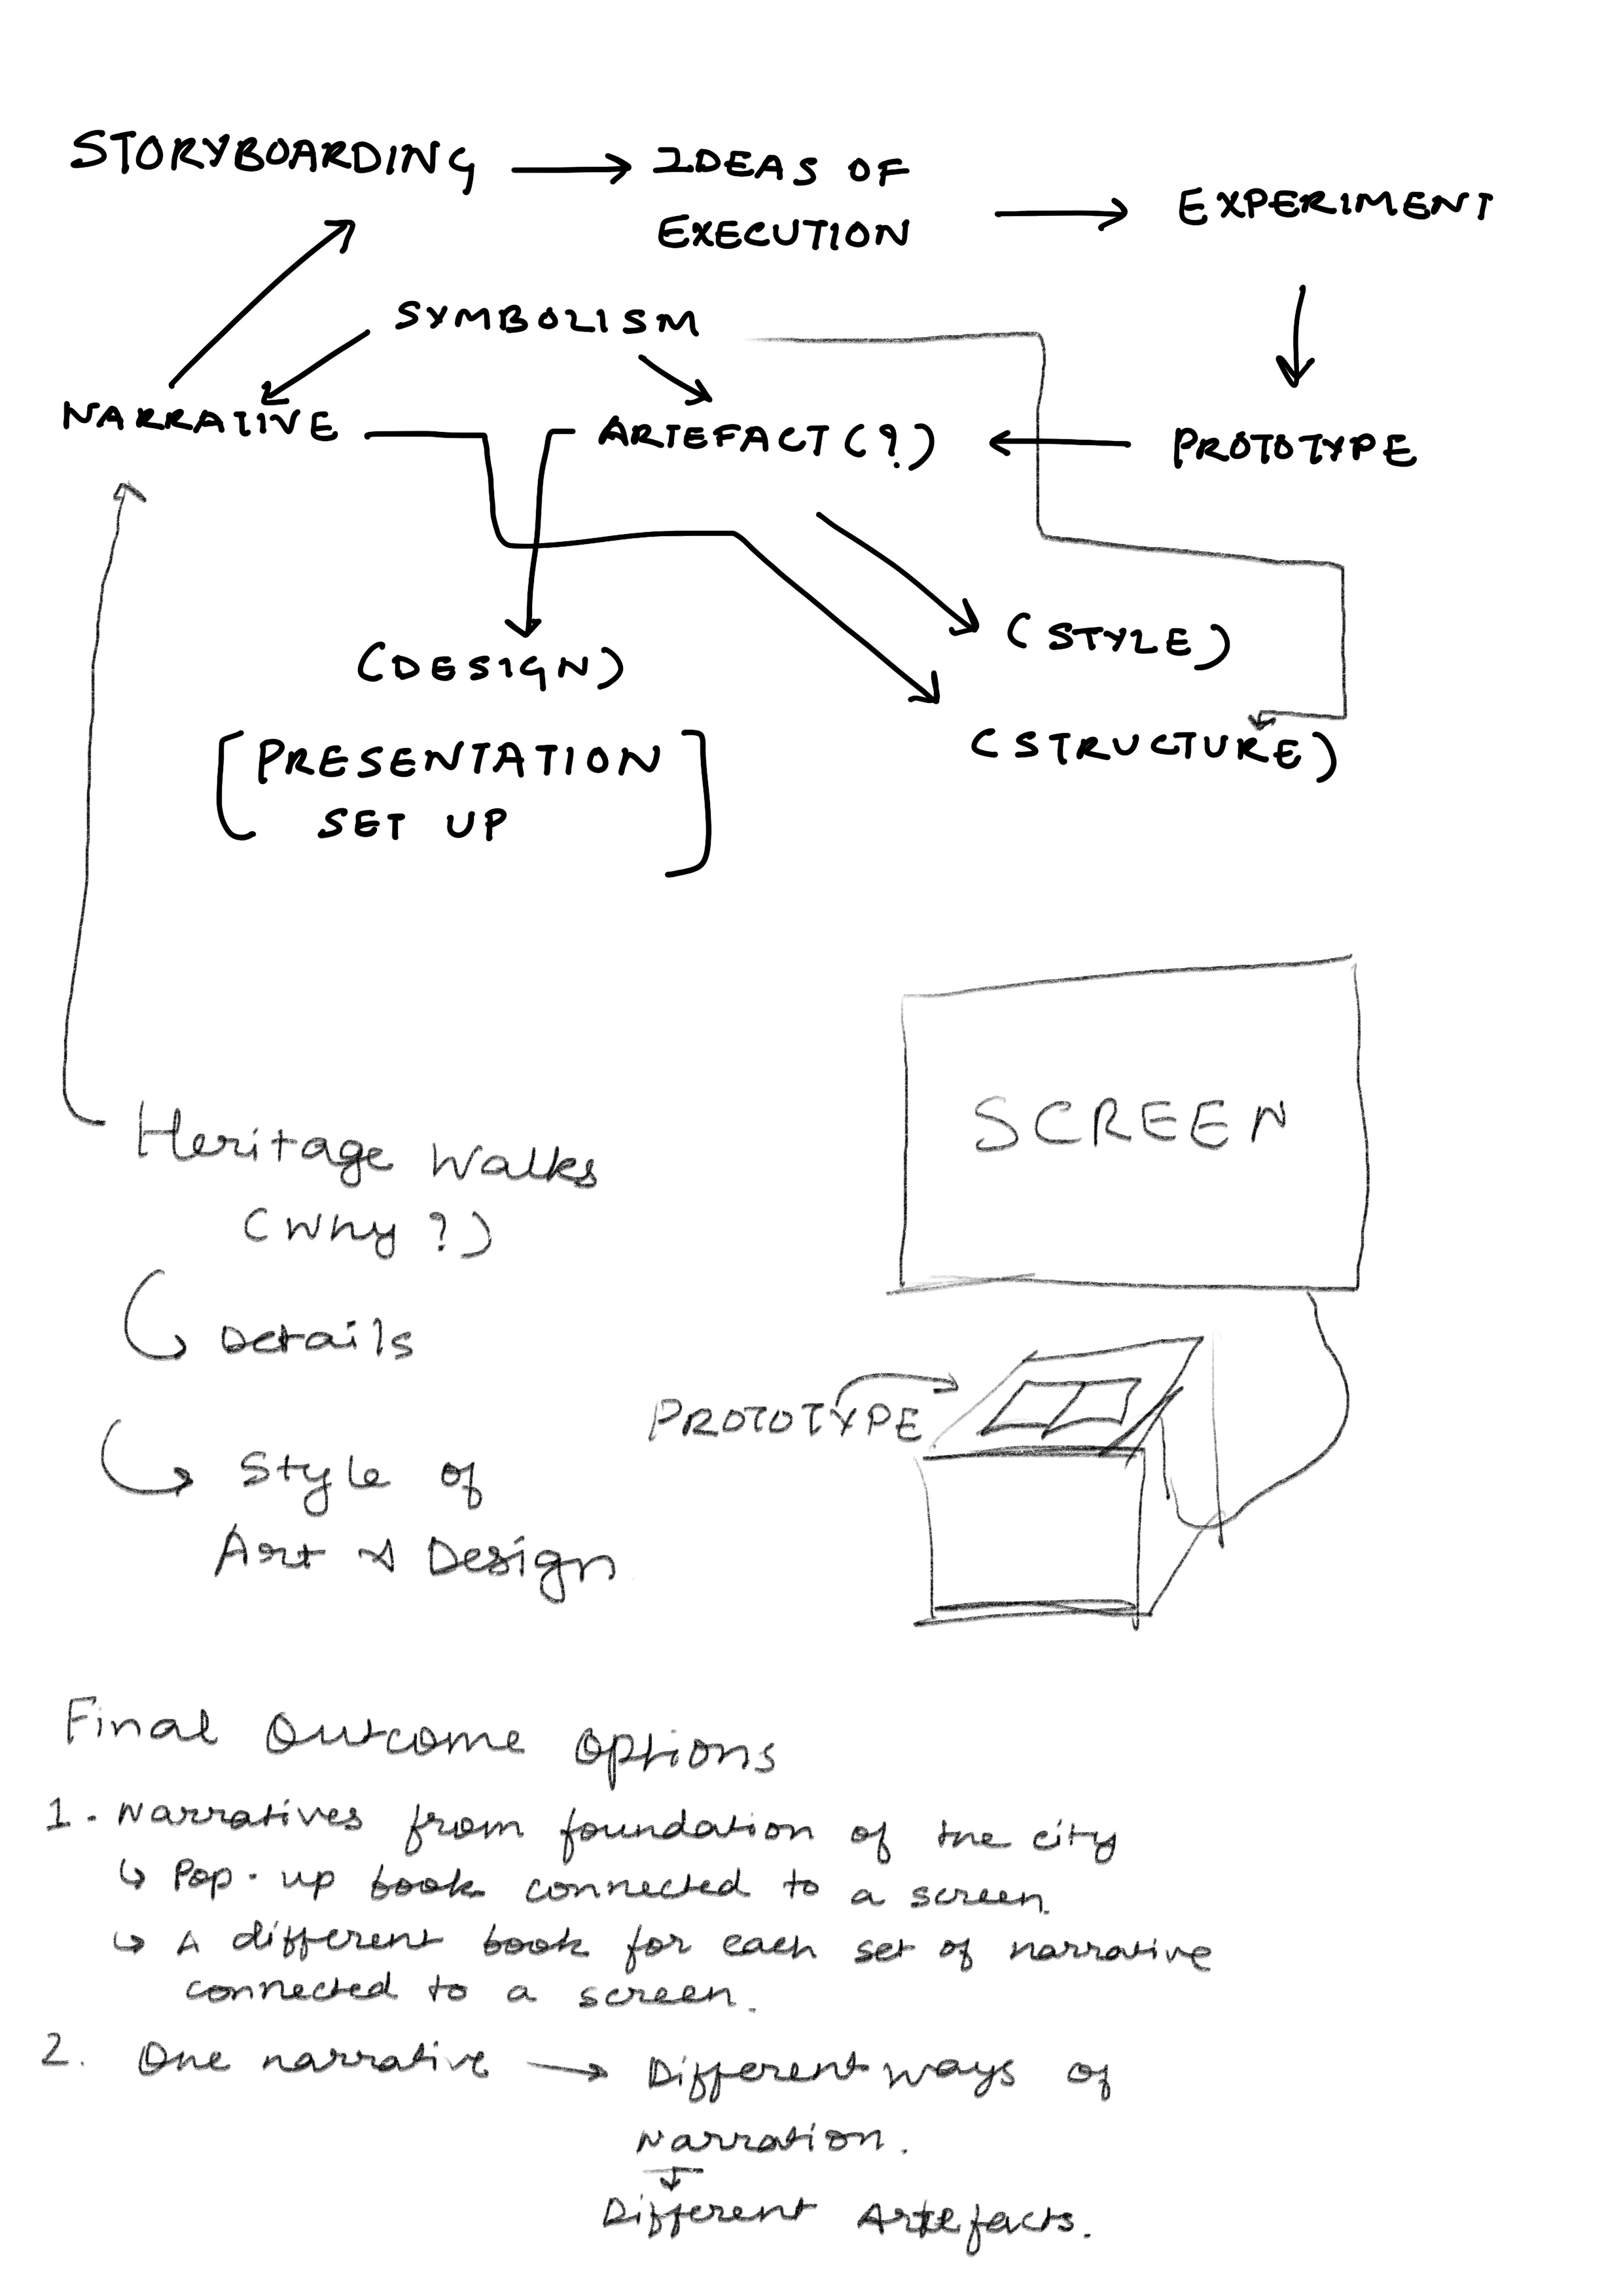 STORYBOARDING
IDEAS OF
EXECUTION
EXPERIMENT
SYMBOLISM
NARRATIVE
ARTEFACT (?)
PROTOTYPE
(STYLE)
(DESIGN)
(STRUCTURE)
[PRESENTATION
SET UP]
SCREEN
Heritage Walks
(Why?)
Details
PROTOTYPE
Style of
Art & Design
Final Outcome Options
1. Narratives from foundation of the city
↳ Pop-up book connected to a screen.
↳ A different book for each set of narrative
connected to a screen.
2. One narrative → Different ways of
Narration.
Different Artefacts.